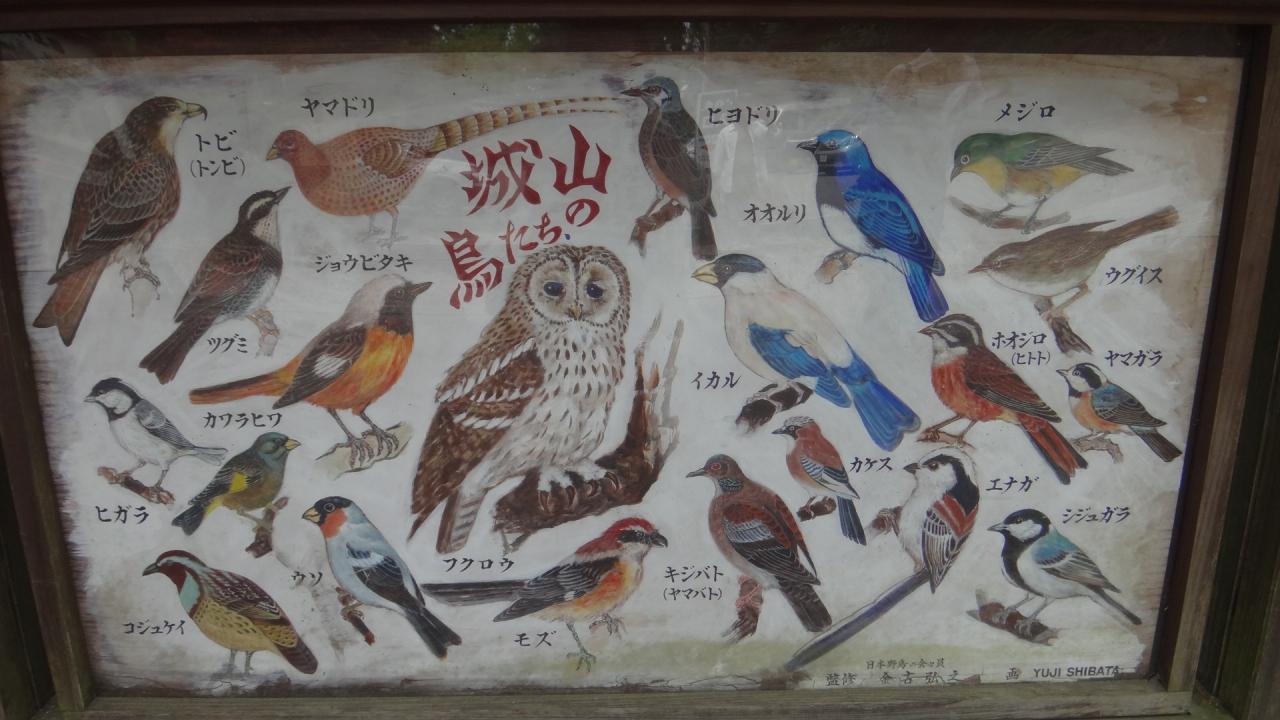 城山の
鳥たち
トビ
(トンビ)
ヤマドリ
ヒヨドリ
メジロ
オオルリ
ウグイス
ツグミ
ジョウビタキ
イカル
ホオジロ
(ヒトト)
ヤマガラ
カワラヒワ
ヒガラ
カケス
エナガ
シジュガラ
フクロウ
ウソ
モズ
キジバト
(ヤマバト)
コジュケイ
日本野鳥の会々員
監修 金古弘之
画 YUJI SHIBATA